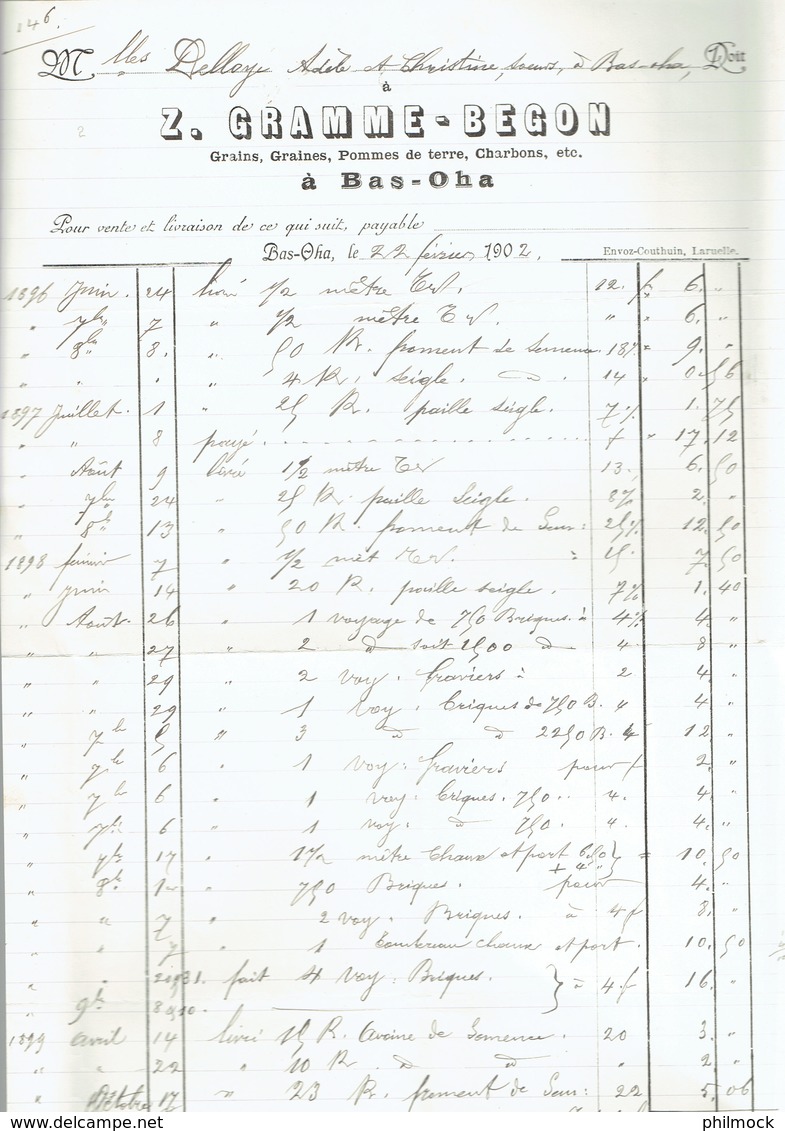 146.
M lles Delloye Adèle et Christine, sœurs, à Bas-oha, Doit
à
Z. GRAMME-BEGON
Grains, Graines, Pommes de terre, Charbons, etc.
à Bas-Oha
Pour vente et livraison de ce qui suit, payable
Bas-Oha, le 22 février 1902.
Envoz-Couthuin, Laruelle.
1896 Juin. 24 livré 1/2 mètre 12. f 6. "
" 7bre 7 " 1/2 mètre " " 6. "
" 8bre 8. " 50 K. froment de semence 18% " 9. "
" " " " 4 K. seigle. d° 14 " 0.56
1897 Juillet. 1 " 25 K. paille seigle. 7% 1.75
" " 8 payé. f " 17.12
" Août 9 livré 1/2 mètre 13. 6.50
" 7bre 24 " 25 K. paille seigle. 8% 2. "
" 8bre 13 " 50 K. froment de Sem: 25% 12.50
1898 7 " 1/2 mèt. à 15. 7.50
" Juin 14 " 20 K. paille seigle. 7% 1.40
" Août. 26 " 1 voyage de 750 Briques à 4% 4. "
" " 27 " 2 d° soit 1500 d° 4 8 "
" " 29 " 2 voy. graviers à 2 4. "
" " 29 " 1 voy. briques de 750 B. " 4 "
" 7bre 5 " 3 d° d° 2250 B. 4 12 "
" 7bre 6 " 1 voy: graviers pour f 2. "
" 7bre 6 1 voy: briques. 750 .. 4. 4. "
" 7bre 6 " 1 voy: d° 750. 4. 4. "
" 7bre 17 " 1 1/2 mètre chaux et port 6.50 } = 10.50
+ 4 "
" 8bre 1er 750 Briques. pour 4. "
" " 7 " 2 voy. Briques. à 4 f 8. "
" " 7 " 1 tombereau chaux et port. 10.50
" " 20 31. fait 4 voy: Briques. } à 4 f 16. "
" 9bre 8 10.
1899 avril 14 livré 15 K. avoine de semence. 20 3. "
" " 22 " 10 K. d° d° " 2. "
" Octobre 17 " 23 K. froment de Sem: 22 5.06
philmock